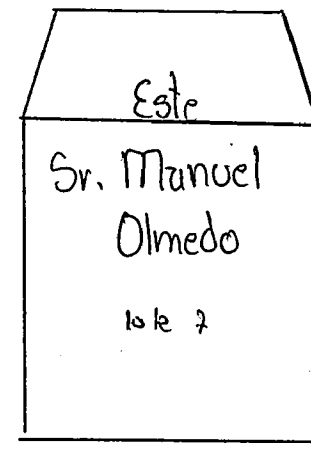 Este
Sr. Manuel
Olmedo
lote 7